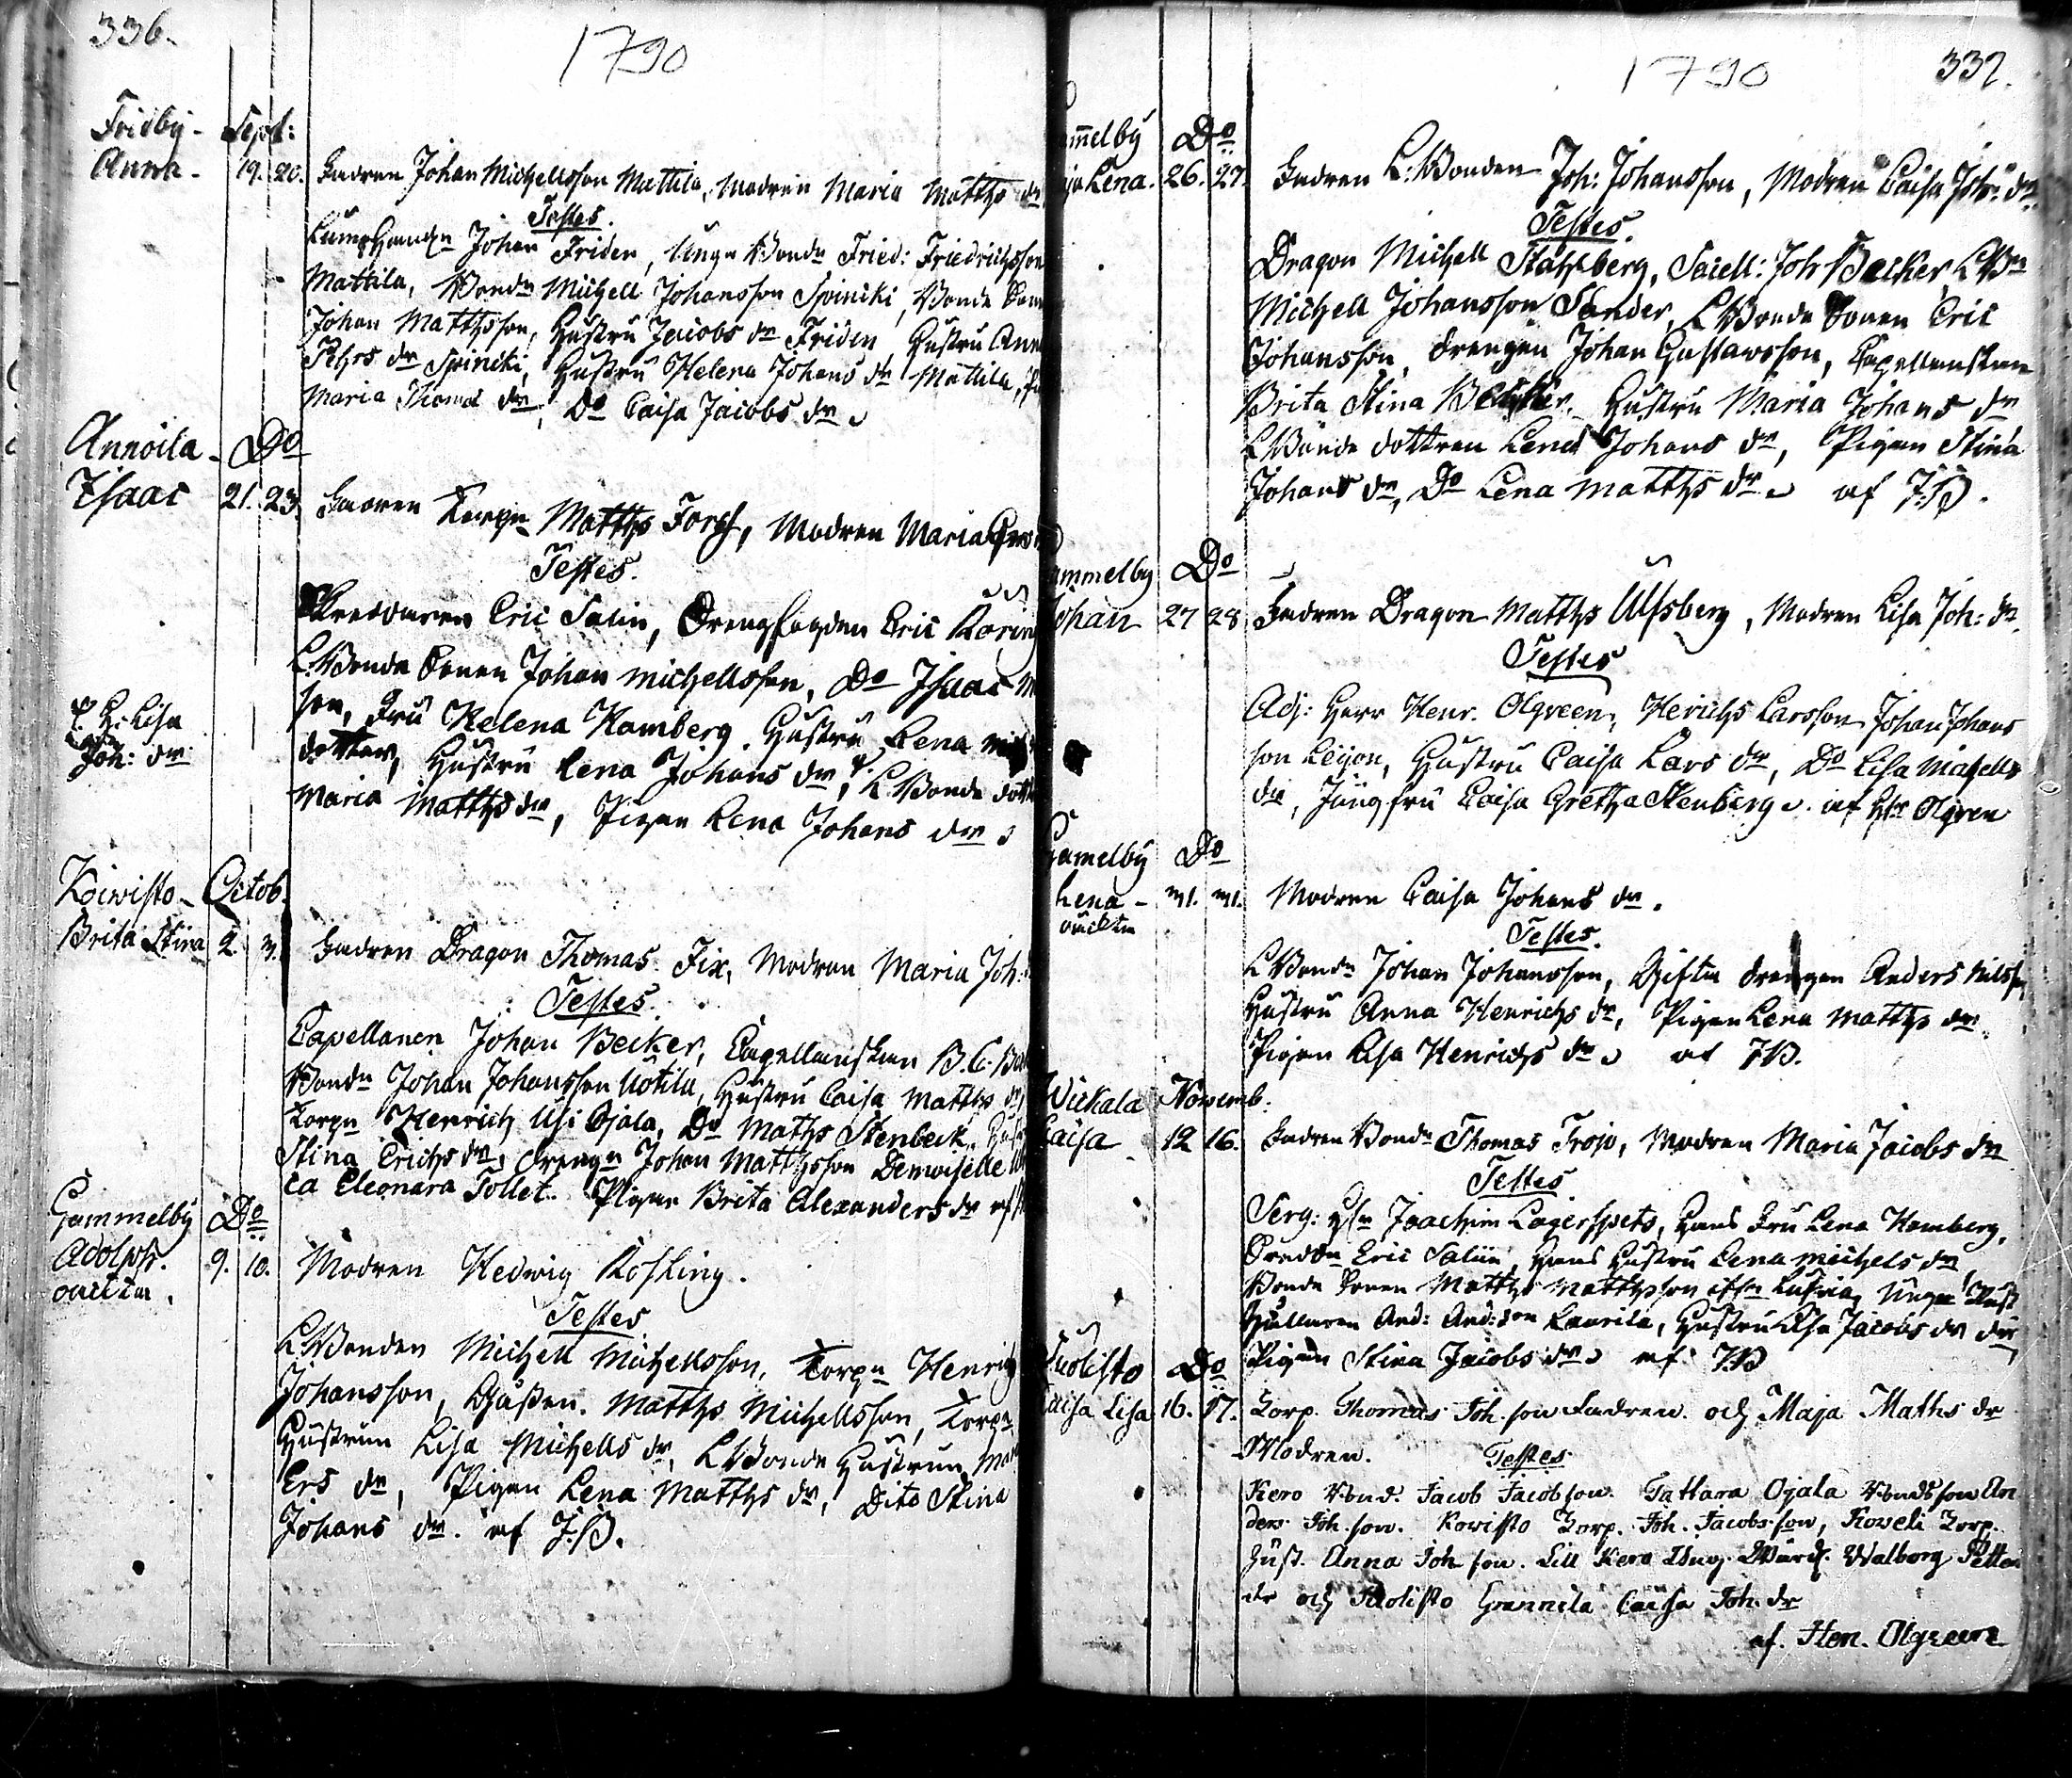 336.
1790
Fridby - Sept:
Anna - 19. 20. Fadren Johan Michellsson Mattila, Modren Maria Matths dr
Testes.
Johan Friden, Unge Bondn Fried: Friedrichsson
Mattila, Bondn Michell Johansson Spiniki, Bonde Sonen
Johan Matthsson, Hustru Jacobs dr Friden Hustru Ann
Pehrs dr Spiniki, Hustru Helena Johans dr Mattila,
Maria Thomas dr, Do Caisa Jacobs dr
Annoila - Do
Isaac 21. 23. Fadren Torpn Matths Forss, Modren Maria
Testes.
Eric Salin, Drengfogden Eric
L Bonde Sonen Johan Michellsson, Do Isaac M
son, Fru Helena Hamberg, Hustru Lena
dotter, Hustru Lena Johans dr, L Bonde dott
Maria Matths dr, Pigan Lena Johans dr
H. Lisa
Joh: dr
Koiwisto - Octob.
Brita Stina 2. 3. Fadren Dragon Thomas Fix, Modren Maria Joh:
Testes.
Capellanen Johan Becker, Capellanskan B. C.
Bondn Johan Johansson Uotila, Hustru Caisa Matths dr
Torpn Henrich Usi Ojala, Do Maths Stenbeck,
Stina Erichs dr, drengn Johan Matthsson Demoiselle
ca Eleonara Tollet. Pigan Brita Alexanders dr af
Gammelby Do
Adolph. 9. 10. Modren Hedwig Kosking.
oäckta.
Testes
L Bonden Michell Michellsson, Torpn Henrich
Johansson, Gossen Matths Michellsson, Torpn
Hustrun Lisa Michells dr, L Bonde Hustrun
Ers dr, Pigan Lena Matths dr, Dito Stina
Johans dr. af J.B.
1790
337.
ammelby Do
Lena. 26. 27. Fadren L: Bonden Joh: Johansson, Modren Caisa Joh: dr
Testes.
Dragon Michell Stahlberg, Sacell: Joh Becker, L Bn
Michell Johansson Sander, L Bonde Sonen Eric
Johansson, drengen Johan Gustawsson, Capellanskan
Brita Stina Becker, Hustru Maria Johans dr
L Bonde dottren Lena Johans dr, Pigan Stina
Johans dr, Do Lena Matths dr af J:B.
ammelby Do
Johan 27 28 Fadren Dragon Matths Ulfsberg, Modren Lisa Joh: dr.
Testes
Adj: Herr Henr. Olgreen, Henrichs Larsson Johan Johans
son Leijon, Hustru Caisa Lars dr, Do Lisa Michells
dr, Jungfru Caisa Gretha Stenberg af Hr Olgren
Gamelby Do
Lena - 31. 31. Modren Caisa Johans dr.
oäckta
Testes.
L Bondn Johan Johansson, Gifta drengen Anders Nilsson
Hustru Anna Henrichs dr, Pigan Lena Matths dr
Pigan Lisa Henrichs dr af J B.
Wickala Nowemb:
Caisa 12 16. Fadren Bondn Thomas Trojo, Modren Maria Jacobs dr
Testes
Serg: Hr Joachim Lagerspets, Hans Fru Lena Hamberg,
Eric Salin, Hans Hustru Lena Michels dr
Bonde Sonen Matths Matthsson Lusia, Unge
And: And:son Laurila, Hustru Lisa Jacobs dr
Pigan Stina Jacobs dr af J B
Kuolisto Do
Caisa Lisa 16. 17. Torp. Thomas Joh. son Fadren. och Maja Maths dr
Modren. Testes
Kero Bond. Jacob Jacobson. Tattara Ojala Bondson An
ders Joh. son. Kowisto Torp. Joh. Jacobs.son, Koweli Torp.
Hust. Anna Joh son. Lill Kero Walborg Petter
dr och Kuolisto Grannila Caisa Joh. dr
af. Hen. Olgreen